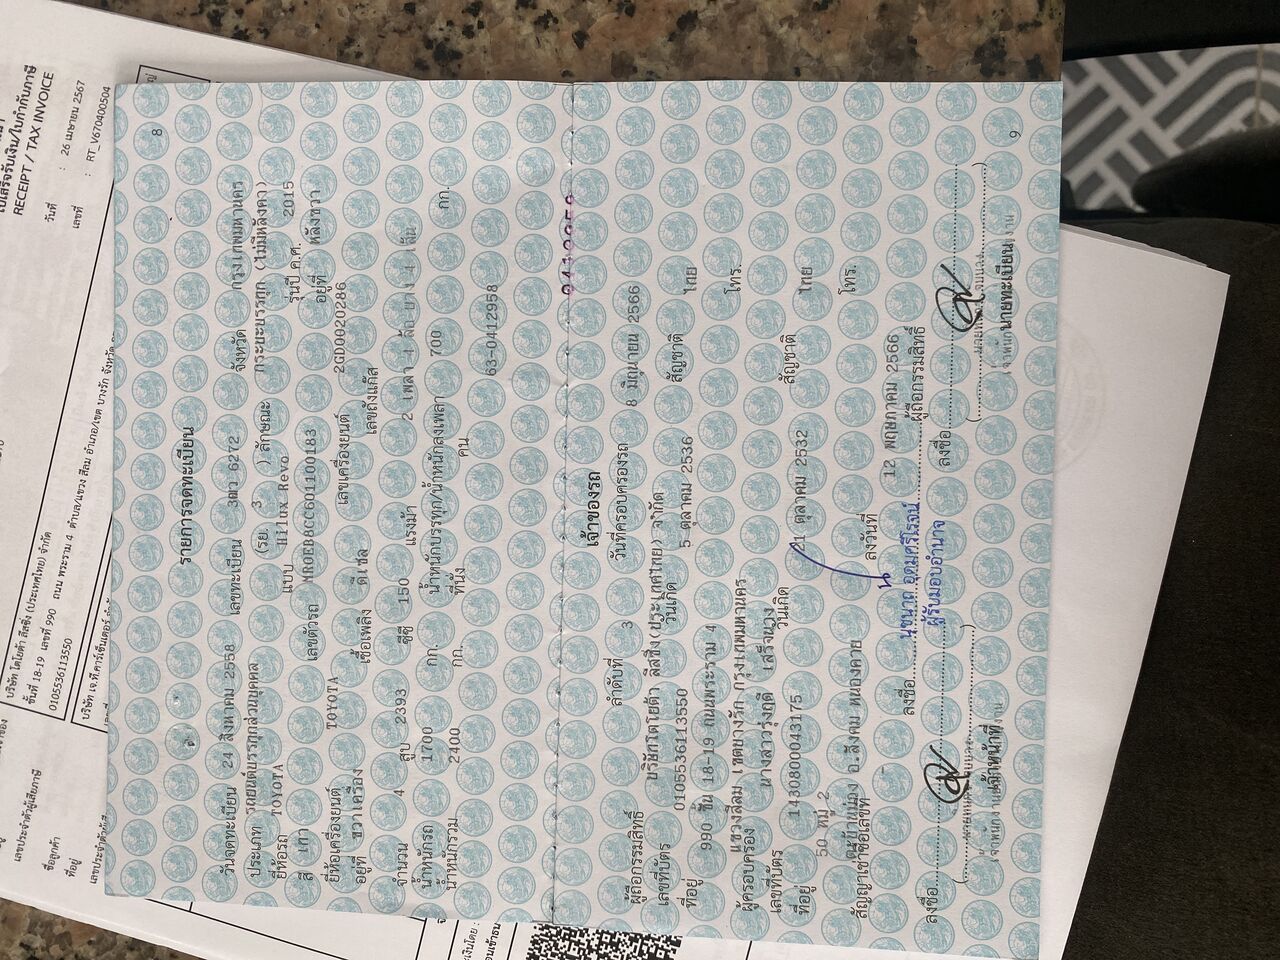 8
รายการจดทะเบียน
วันจดทะเบียน 24 สิงหาคม 2558 เลขทะเบียน 6272 จังหวัด กรุงเทพมหานคร
ประเภท รถยนต์บรรทุกส่วนบุคคล (รย. 3 ) ลักษณะ กระบะบรรทุก (ไม่มีหลังคา)
ยี่ห้อรถ TOYOTA แบบ Hilux Revo รุ่นปี ค.ศ. 2015
สี เทา เลขตัวรถ MR0EB8CC601100183 อยู่ที่ หลังขวา
ยี่ห้อเครื่องยนต์ TOYOTA เลขเครื่องยนต์ 2GD0020286
อยู่ที่ ขวาเครื่อง เชื้อเพลิง ดีเซล เลขถังแก๊ส
จำนวน 4 สูบ 2393 ซีซี 150 แรงม้า 2 เพลา 4 ล้อ ยาง 4 เส้น
น้ำหนักรถ 1700 กก. น้ำหนักบรรทุก/น้ำหนักลงเพลา 700 กก.
น้ำหนักรวม 2400 กก. ที่นั่ง คน
63-0412958
เจ้าของรถ
ลำดับที่ 3 วันที่ครอบครองรถ 8 มิถุนายน 2566
ผู้ถือกรรมสิทธิ์ บริษัทโตโยต้า ลีสซิ่ง(ประเทศไทย)จำกัด
เลขที่บัตร 0105536113550 วันเกิด 5 ตุลาคม 2536 สัญชาติ ไทย
ที่อยู่ 990 ชั้น 18-19 ถนนพระราม 4 โทร.
แขวงสีลม เขตบางรัก กรุงเทพมหานคร
ผู้ครอบครอง นางสาวรุ่งฤดี เสร็จนวง
เลขที่บัตร 1430800043175 วันเกิด 1 ตุลาคม 2532 สัญชาติ ไทย
ที่อยู่ 50 หมู่ 2 โทร.
อ.สังคม หนองคาย
สัญญาเช่าซื้อเลขที่ - ลงวันที่ 12 พฤษภาคม 2566
นุชนาถ อุดมศรีโรจน์
ลงชื่อ ผู้ถือกรรมสิทธิ์
ผู้รับมอบอำนาจ
ลงชื่อ ลงชื่อ
เจ้าหน้าที่ นายทะเบียน
9
ใบเสร็จรับเงิน/ใบกำกับภาษี
RECEIPT / TAX INVOICE
วันที่ : 26 เมษายน 2567
เลขที่ : RT_V670400504
เลขประจำตัวผู้เสียภาษี
ชื่อลูกค้า บริษัท โตโยต้า ลีสซิ่ง (ประเทศไทย) จำกัด
ที่อยู่ ชั้นที่ 18-19 เลขที่ 990 ถนน พระราม 4 ตำบล/แขวง สีลม อำเภอ/เขต บางรัก จังหวัด
เลขประจำตัวผู้เสียภาษี 0105536113550